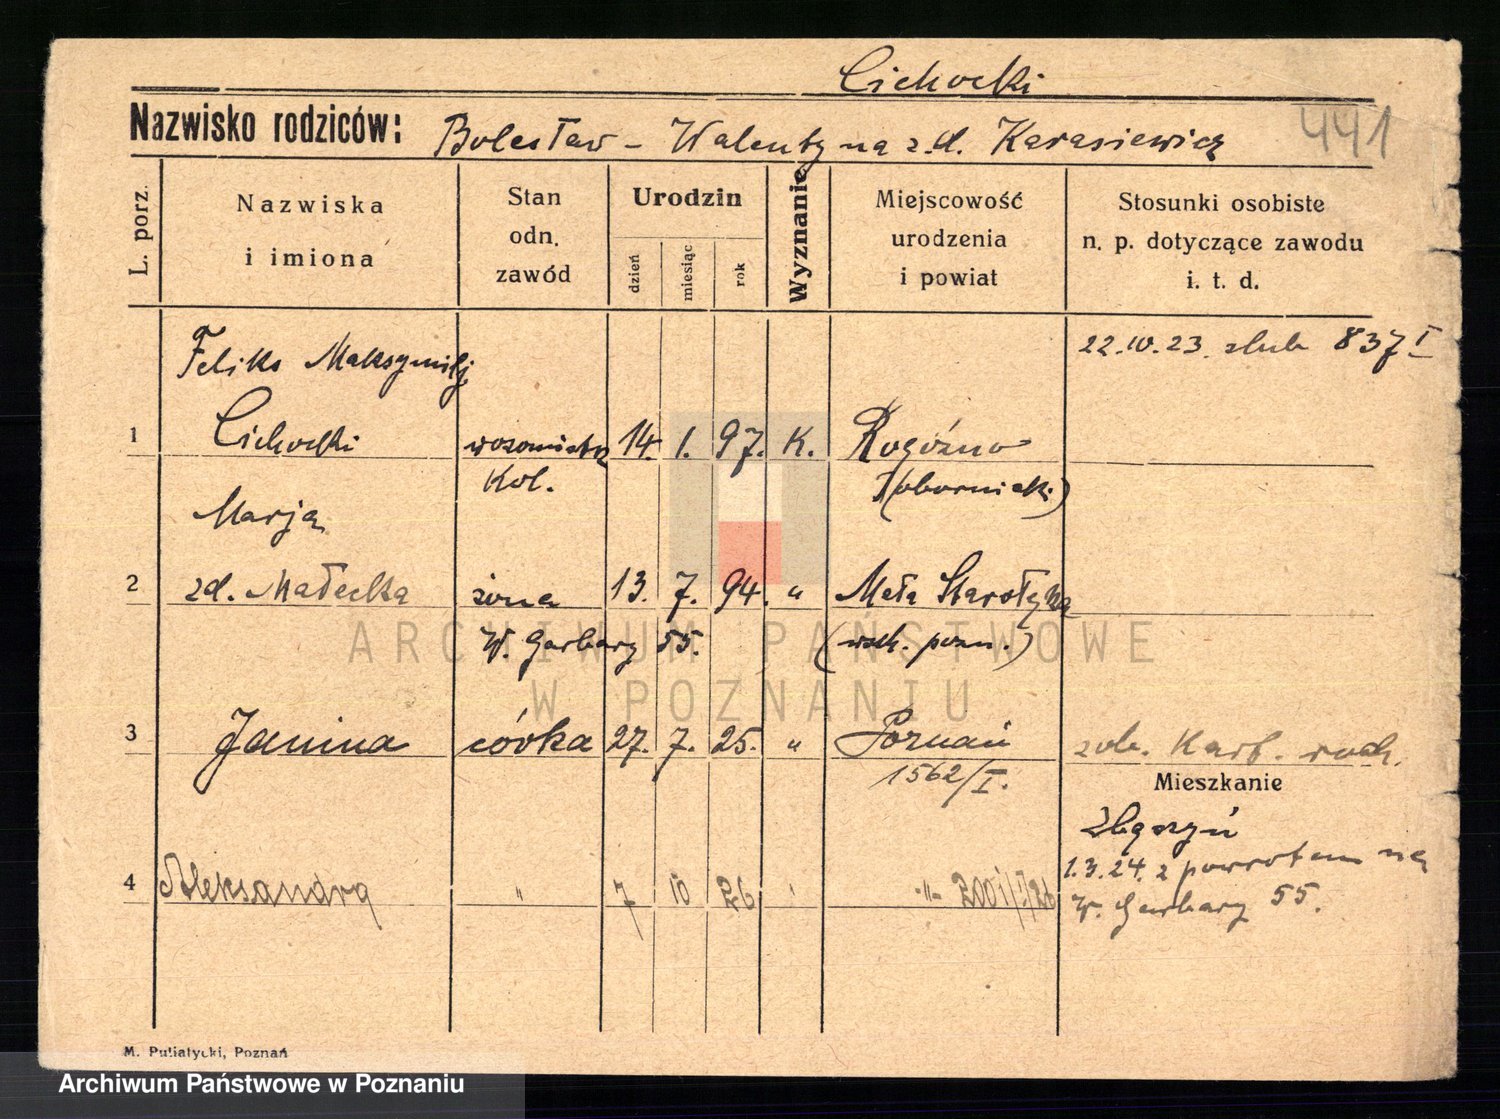 Cichocki
Nazwisko rodziców: Bolesław - Walentyna z.d. Karasiewicz
441
L. porz.
Nazwiska i imiona
Stan odn. zawód
Urodzin
dzień
miesiąc
rok
Wyznanie
Miejscowość urodzenia i powiat
Stosunki osobiste n. p. dotyczące zawodu i. t. d.
Feliks Maksymilj.
22.IV.23. slub 837 I
1 Cichocki 14. 1. 97. K. Rogoźno
Kol. (obornicki)
Marja
2 zd. Małecka żona 13. 7. 94. " Mała Starołęka
W. Garbary 55. (wsch. pozn.)
ARCHIWUM PAŃSTWOWE
W POZNANIU
3 Janina córka 27. 7. 25. " Poznań zob. Kart. roch.
1562/I.
Mieszkanie
Zbąszyń
1.3.24. z powrotem na
4 Aleksandra " 7 10 26 " -"- 2001/I/26
W. Garbary 55.
M. Putiatycki, Poznań
Archiwum Państwowe w Poznaniu